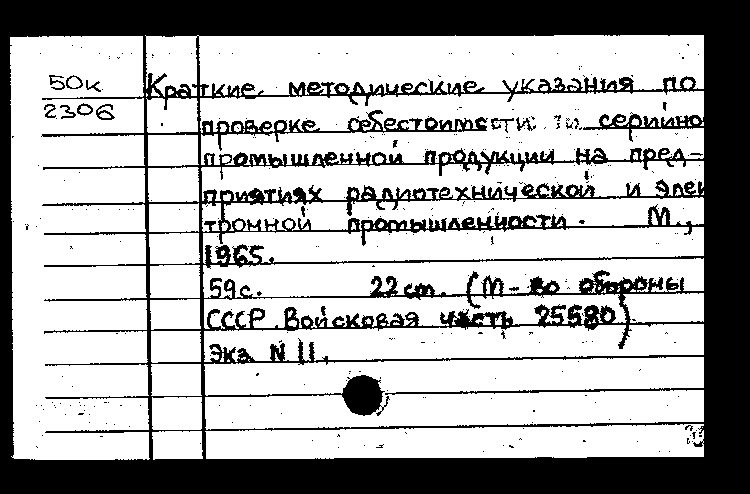 50к
2306
Краткие методические указания по
проверке себестоимости серийно
промышленной продукции на пред-
приятиях радиотехнической и элек
тронной промышленности. М.,
1965.
59с. 22 cm. (М-во обороны
СССР. Войсковая часть 25580)
Экз. N 11.